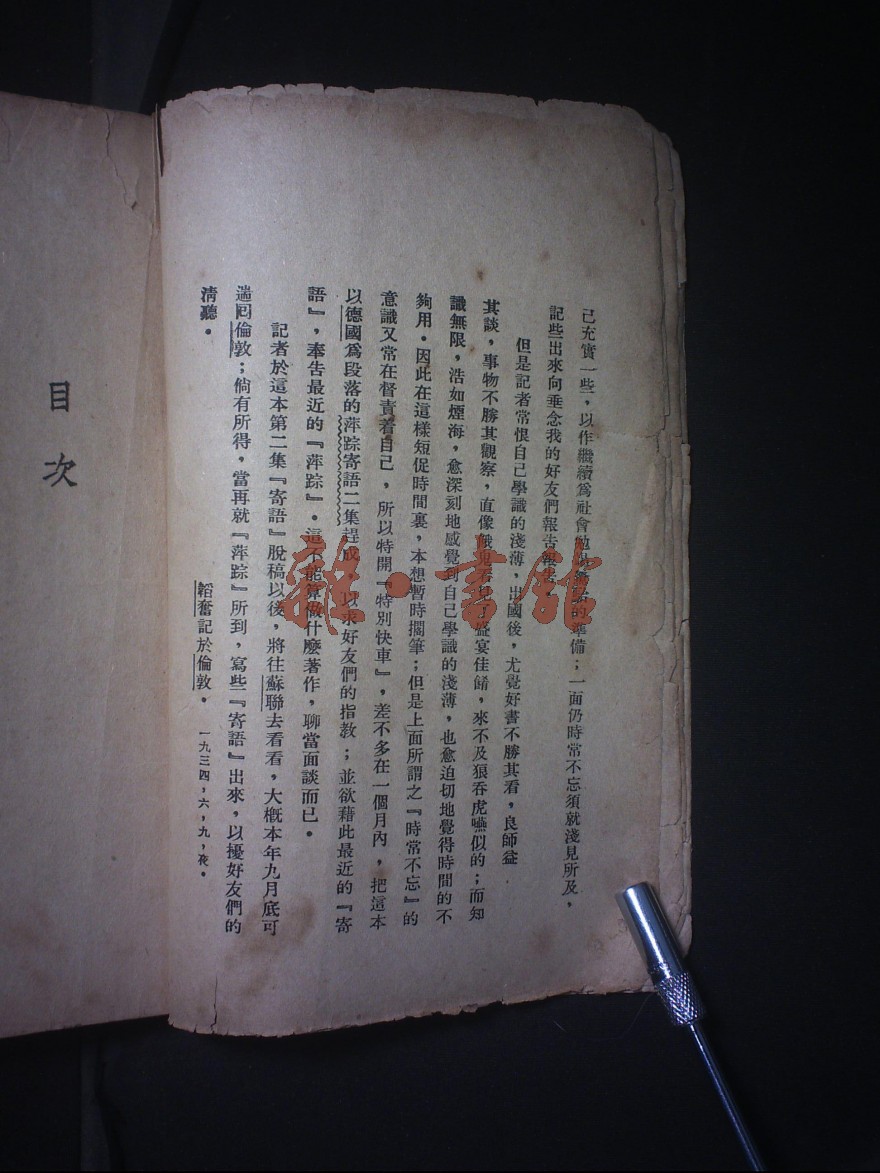 己充實一些，以作繼續為社會勉竭駑駘的準備；一面仍時常不忘須就淺見所及，
記些出來向垂念我的好友們報告報告。
但是記者常恨自己學識的淺薄，出國後，尤覺好書不勝其看，良師益
其談，事物不勝其觀察，直像餓鬼看見了盛宴佳餚，來不及狼吞虎嚥似的；而知
識無限，浩如煙海，愈深刻地感覺到自己學識的淺薄，也愈迫切地覺得時間的不
夠用。因此在這樣短促時間裏，本想暫時擱筆；但是上面所謂之『時常不忘』的
意識又常在督責着自己，所以特開『特別快車』，差不多在一個月內，把這本
以德國爲段落的萍踪寄語二集趕成，以求好友們的指教；並欲藉此最近的『寄
語』，奉告最近的『萍踪』。這不能算做什麼著作，聊當面談而已。
記者於這本第二集『寄語』脫稿以後，將往蘇聯去看看，大概本年九月底可
遄回倫敦；倘有所得，當再就『萍踪』所到，寫些『寄語』出來，以擾好友們的
清聽。
韜奮記於倫敦。一九三四，六，九，夜。
目次
雜·書館